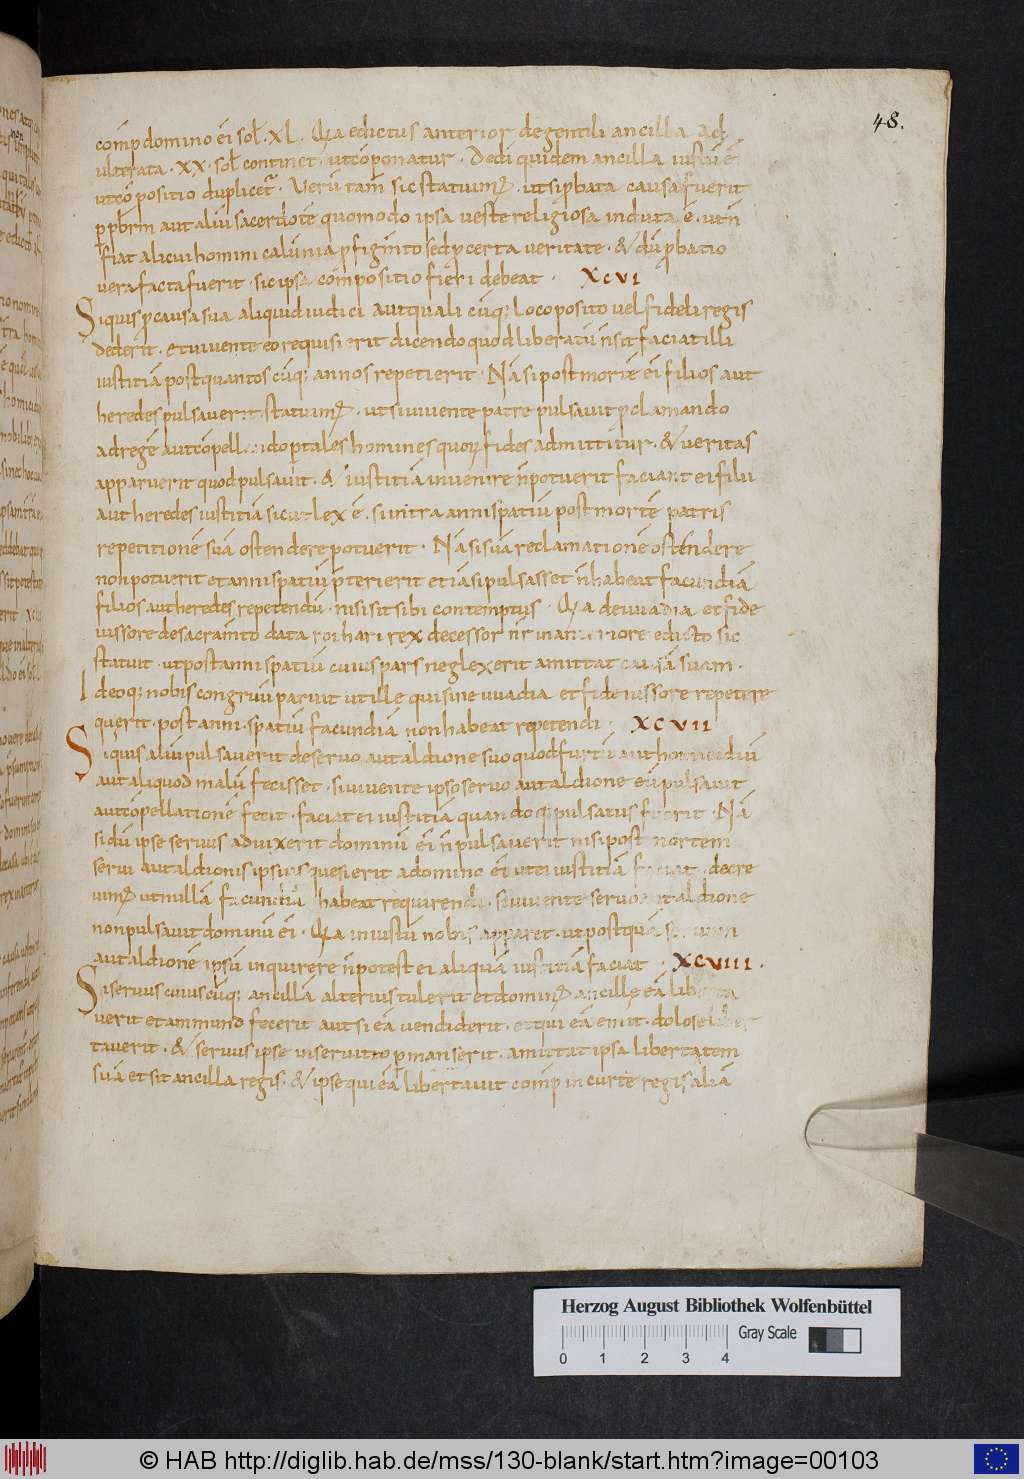 48.
comp domino ei sol. XL. Q̅a edictus anterior de gentili ancilla ad
ulterata. XX. sol continet. ut coponatur. Dedi quidem ancilla iustu ē
ut co positio duplicet. Veru tam sic statuim. ut si pbata causa fuerit
p pbrm aut aliu sacerdote quomodo ipsa veste religiosa induta ē. ut ñ
fiat alicui homini calūnia p figm̅to sed p certa veritate. & dū pbatio
vera facta fuerit. sic ipsa compositio fieri debeat. XCVI
Siquis p causa sua aliquid iudici aut quali cūq; loco posito vel fideli regis
dederit. et vivente eo requisierit dicendo quod liberatū ñ sit faciat illi
iustitiā post quantos cūq; annos repetierit. Nā si post morte ei filios aut
heredes pulsaverit. statuim. ut si vivente patre pulsavit pclamando
ad rege aut copell do p tales homines quor fides admittitur. & veritas
apparuerit quod pulsavit. & iustitiā invenire ñ potuerit faciant ei filii
aut heredes iustitiā sicut lex ē. si intra anni spatiū post mortē patris
repetitionē suā ostendere potuerit. Nā si suā reclamationē ostendere
non potuerit et anni spatiū pterierit etiā si pulsasset ñ habeat facundiā
filios aut heredes repetendū. nisi sit sibi contemptus. Q̅a de wadia et fide
iussore de sacram̅to data rothari rex decessor n̅r in anteriore edicto sic
statuit. ut post anni spatiū cuius pars neglexerit amittat causā suam.
Ideoq; nobis congruū paruit ut ille qui sine wadia et fideiussore repetere
querit. post anni spatiū facundiā non habeat repetendi. XCVII
Siquis aliū pulsaverit de servo aut aldione suo quod furtū aut homicidiū
aut aliquod malū fecisset. si vivente ipso servo aut aldione eū pulsavit
aut copellationē fecit. faciat ei iustitiā quandoq; pulsatus fuerit. Nā
si dū ipse servus advixerit dominū ei ñ pulsaverit nisi post mortem
servi aut aldionis ipsius quesierit a domino ei ut ei iustitiā faciat. decre
vim ut nullā facundiā habeat requirendi. si vivente servo aut aldione
non pulsavit dominū ei. Q̅a iniustū nobis apparet. ut postquā servum
aut aldionē ipsū inquirere ñ potest ei aliquā iustitiā faciat. XCVIII.
Si servus cuiuscūq; ancillā alterius tulerit et domin ancille eā libera
verit et ammund fecerit aut si eā vendiderit. et qui eā emit. dolose liber
taverit. & servus ipse in servitio pmanserit. amittat ipsa libertatem
suā et sit ancilla regis. & ipse qui eā libertavit comp in curte regis aliā
Herzog August Bibliothek Wolfenbüttel
Gray Scale
0 1 2 3 4
© HAB http://diglib.hab.de/mss/130-blank/start.htm?image=00103